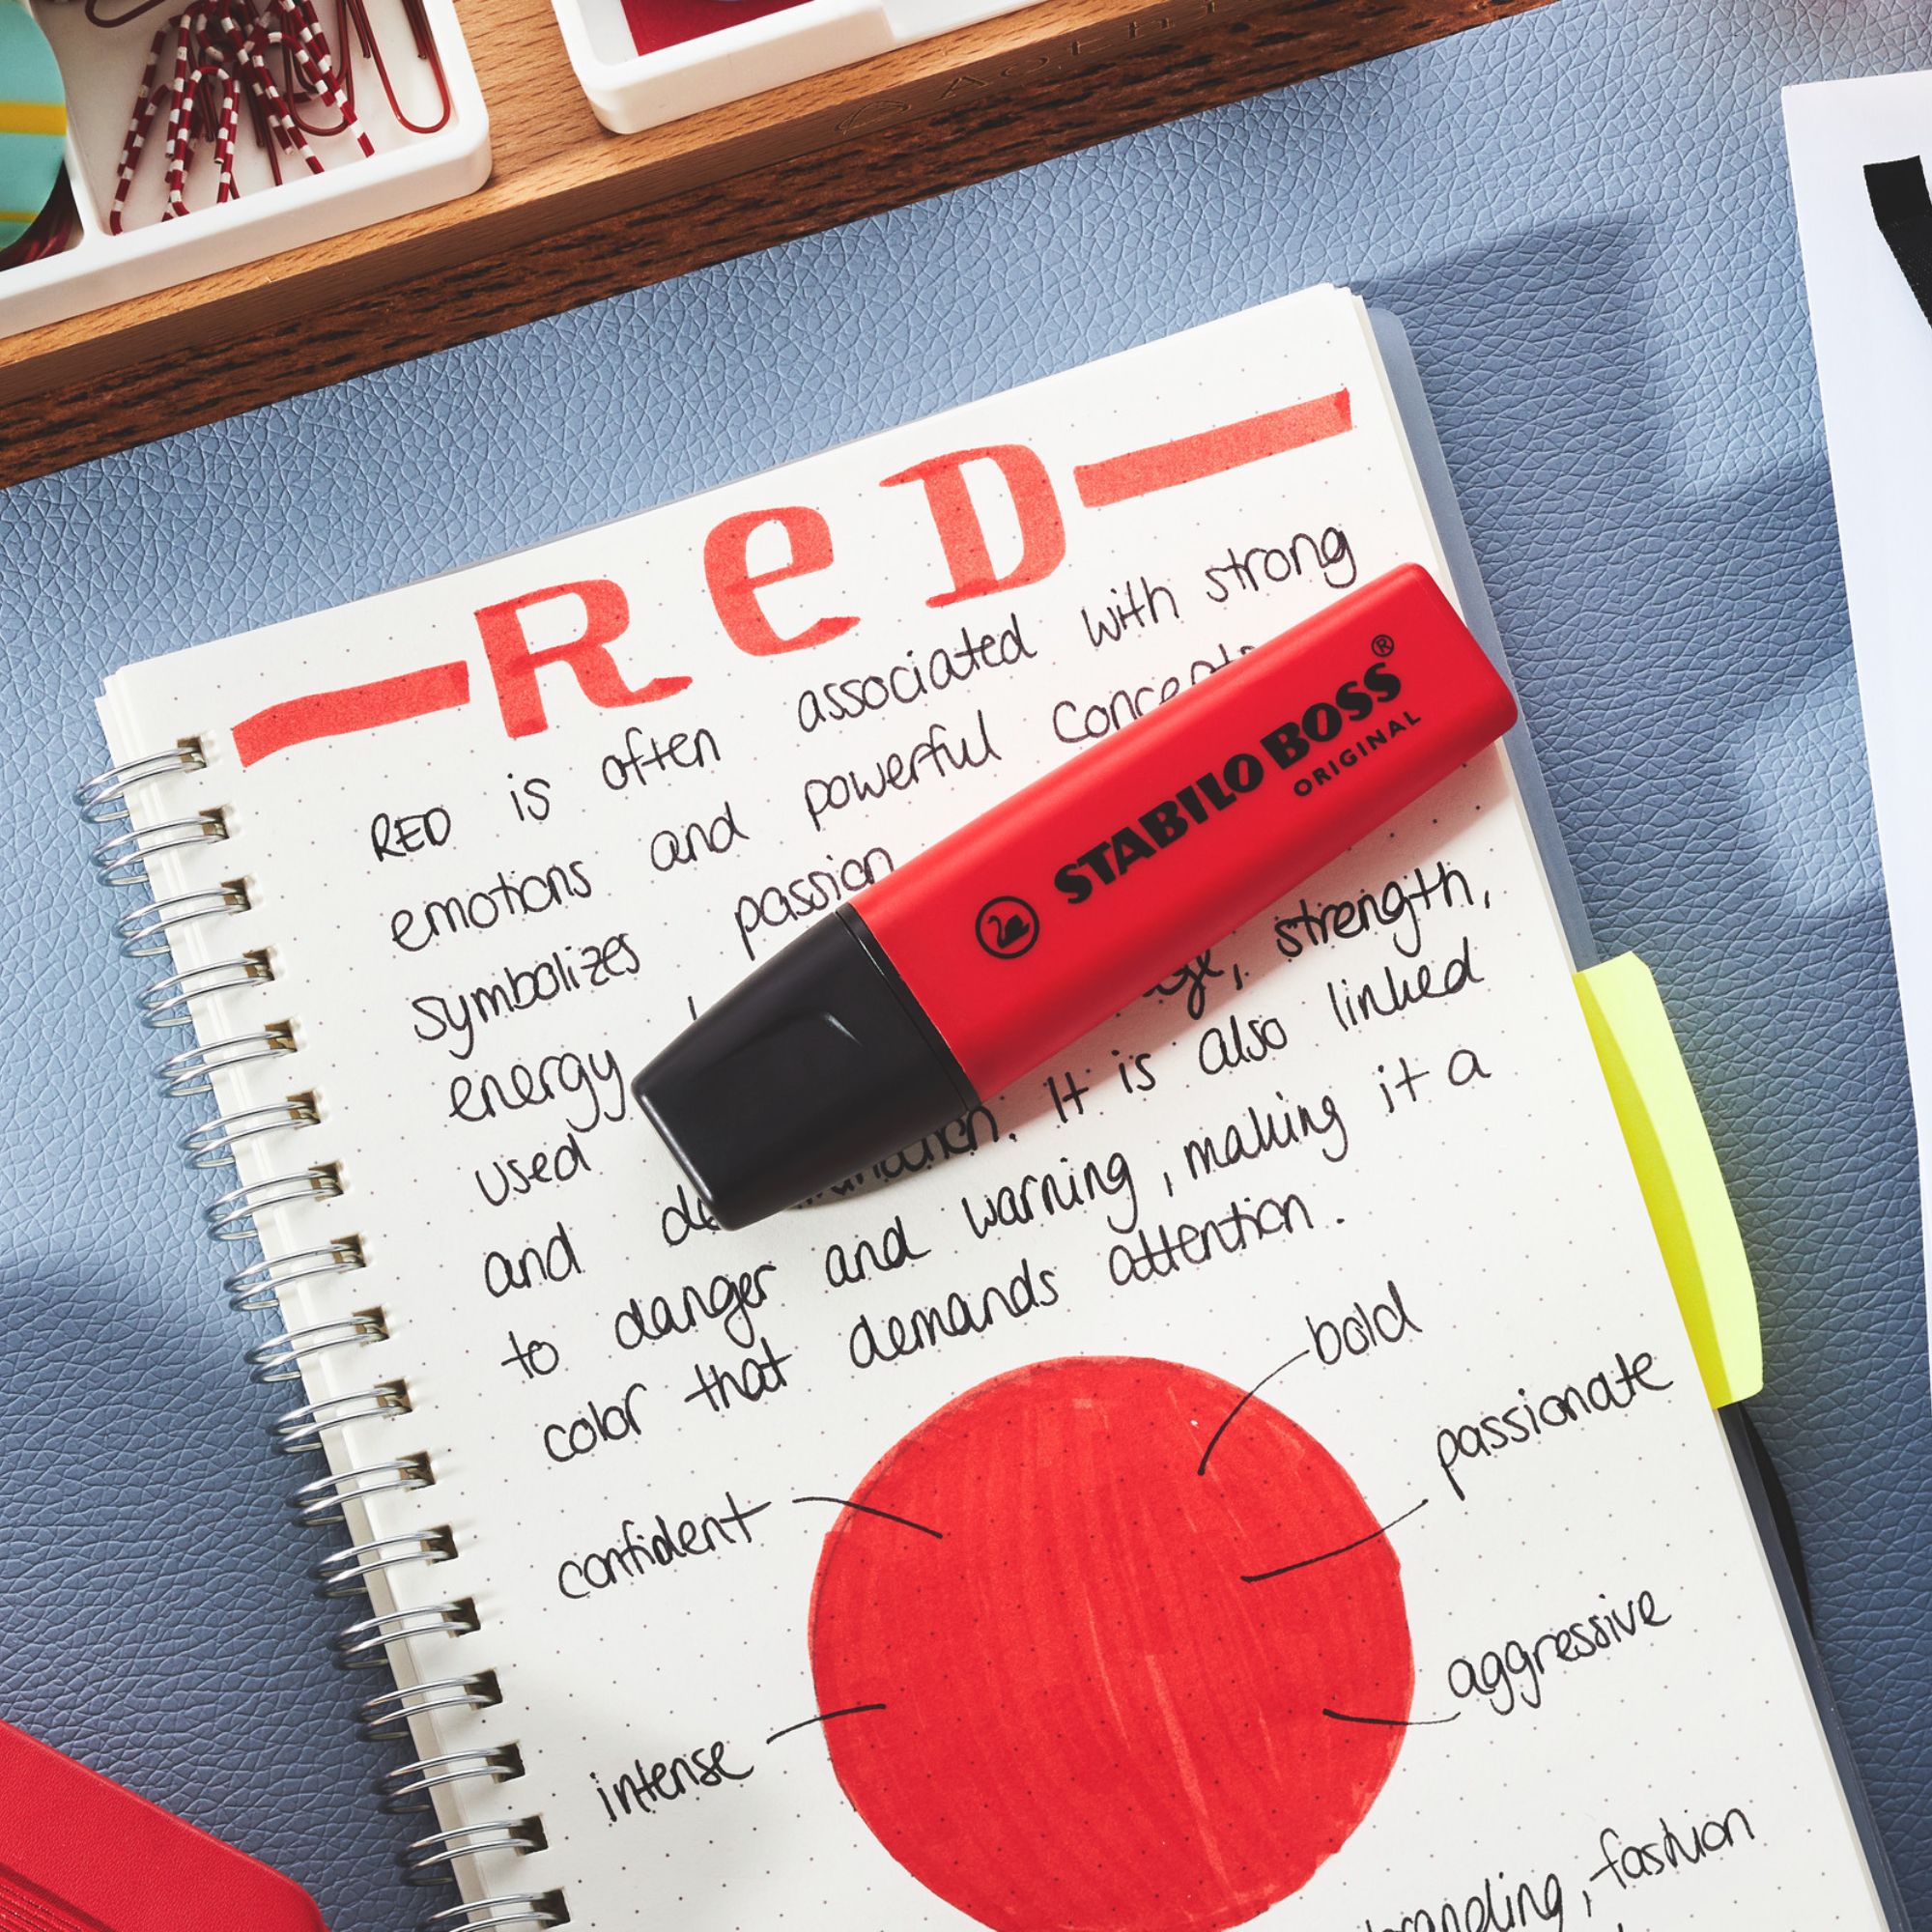 ReD
RED is often associated with strong
emotions and powerful
symbolizes passion
energy strength,
used It is also linked
and
to danger and warning, making it a
color that demands attention.
STABILO BOSS®
ORIGINAL
bold
passionate
confident
aggressive
intense
branding, fashion